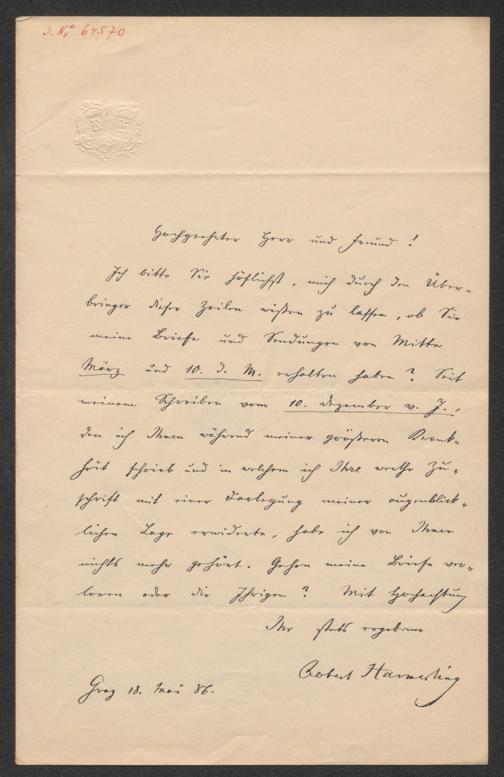 J. No 64570
Hochgeehrter Herr und Freund!
Ich bitte Sie höflichst, mich durch den Über-
bringer dieser Zeilen wissen zu lassen, ob Sie
meine Briefe und Sendungen von Mitte
März und 10. d. M. erhalten haben? Seit
meinem Schreiben vom 10. Dezember v. J.,
den ich Ihnen während meiner größeren Krank-
heit schrieb und in welchem ich Ihre werthe Zu-
schrift mit einer Darlegung meiner augenblick-
lichen Lage erwiderte, habe ich von Ihnen
nichts mehr gehört. Gehen meine Briefe ver-
loren oder die Ihrigen? Mit Hochachtung
Ihr stets ergebener
Robert Hamerling
Graz 18. Mai 86.